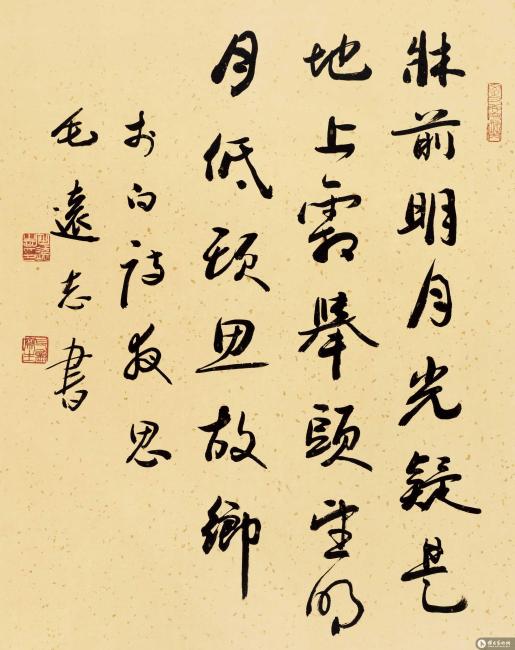 牀前明月光疑是
地上霜舉頭望明
月低頭思故鄉
李白詩夜思
毛遠志書